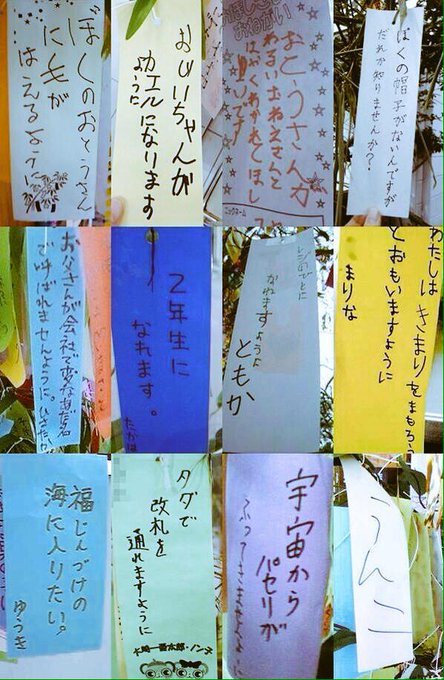 ぼくのおとうさん
に毛が
はえるように
おじいちゃんが
カエルになります
ように
おとうさんが
わるいおねえさんと
はやくわかれてほし
いです
ニックネーム
ぼくの帽子がないんですが
だれか知りませんか？
お父さんが会社で変なあだ名
ばれませんように。
2年生に
なれます。
レジのひとに
なれますように
ともか
わたしは きまりをまもろう
とおもいますように
まりな
福じんづけの
海に入りたい。
ゆうき
タダで
改札を
通れますように
大崎一番太郎・ノンテ
宇宙から
パセリが
ふってきませんように
うんこ